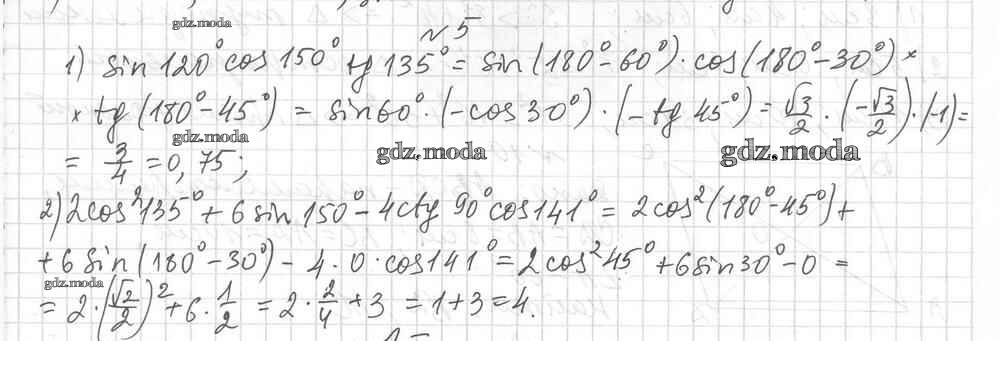 gdz.moda
№5
1) sin 120° cos 150° tg 135° = sin (180° - 60°) · cos (180° - 30°) ×
× tg (180° - 45°) = sin 60° · (-cos 30°) · (-tg 45°) = √3/2 · (-√3/2) · (-1) =
gdz.moda gdz.moda gdz.moda
= 3/4 = 0,75;
2) 2cos² 135° + 6 sin 150° - 4ctg 90° cos 141° = 2cos² (180° - 45°) +
+ 6 sin (180° - 30°) - 4 · 0 · cos 141° = 2cos² 45° + 6 sin 30° - 0 =
gdz.moda
= 2 · (√2/2)² + 6 · 1/2 = 2 · 2/4 + 3 = 1 + 3 = 4.